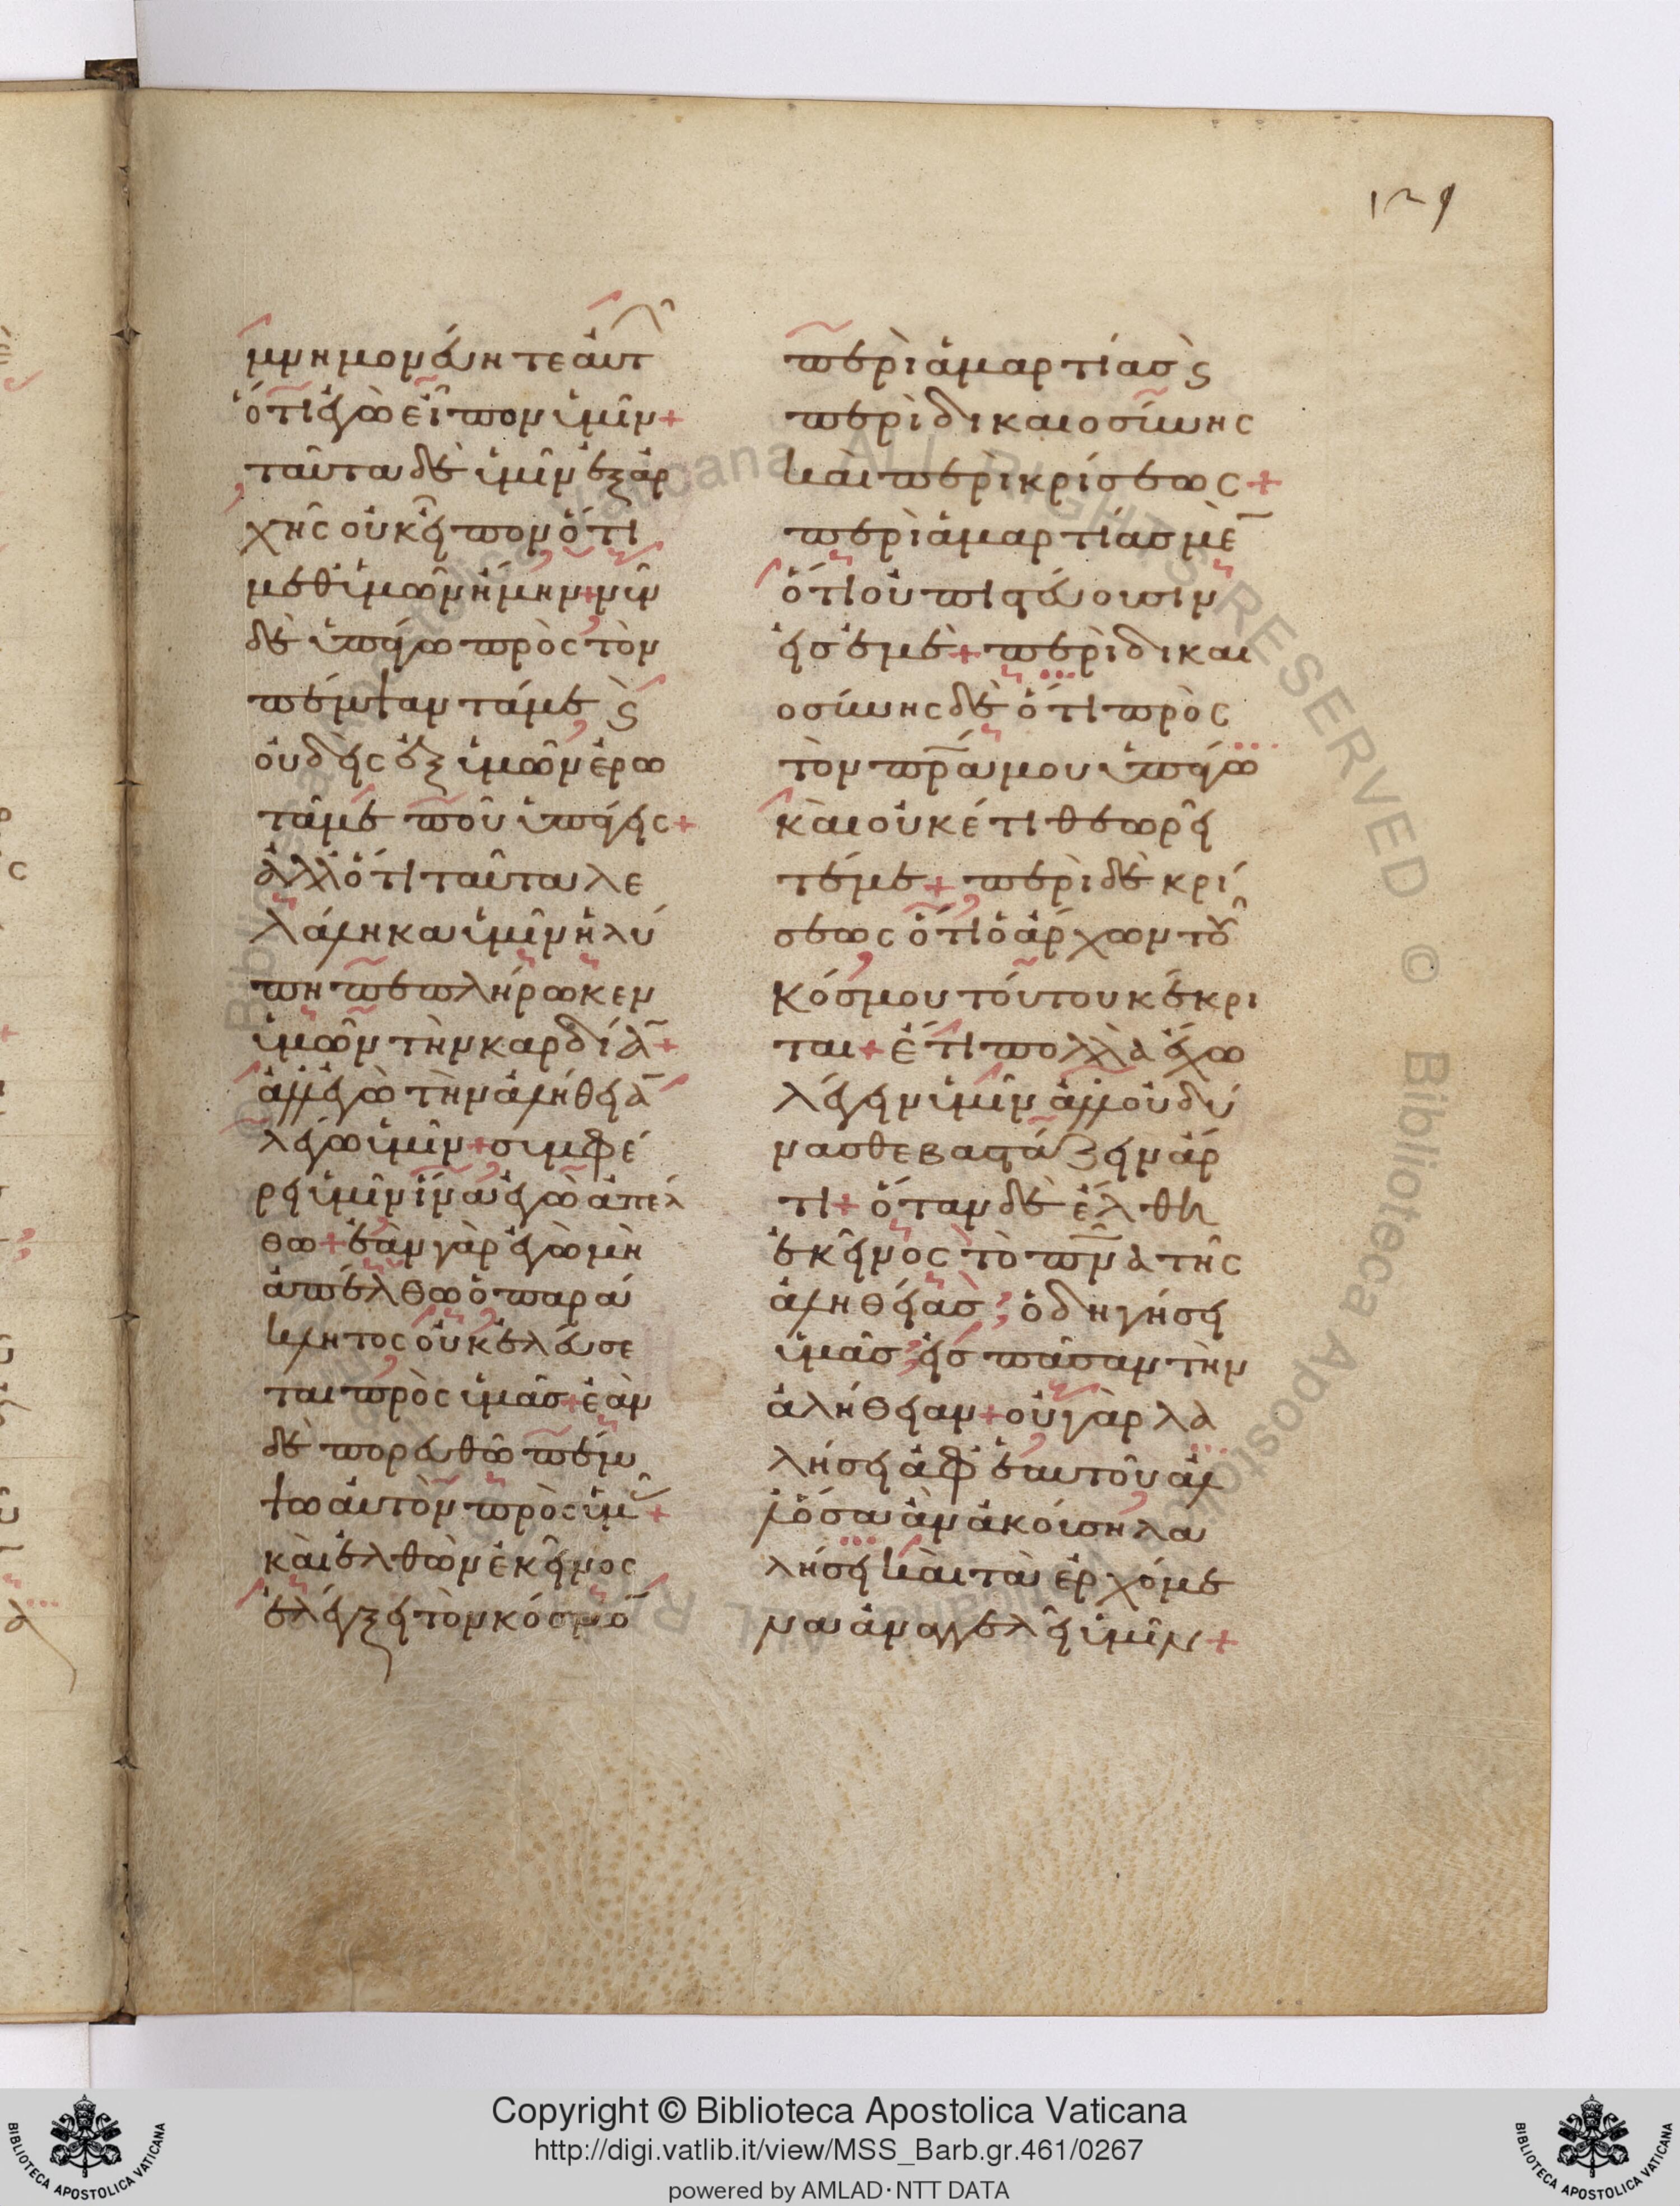 129
μνημονεύητε αὐτ
ὅτι ἐγὼ εἶπον ὑμῖν +
ταῦτα δὲ ὑμῖν ἐξ ἀρ
χῆς οὐκ εἶπον ὅτι
μεθ ὑμῶν ἤμην + νῦν
δὲ ὑπάγω πρὸς τὸν
πέμψαντά με ϛ̀
οὐδεὶς ἐξ ὑμῶν ἐρω
τᾶ με ποῦ ὑπάγεις +
ἀλλ ὅτι ταῦτα λε
λάληκα ὑμῖν ἡ λύ
πη πεπλήρωκεν
ὑμῶν τὴν καρδίᾱ +
ἀλλ ἐγὼ τὴν ἀλήθειᾱ
λέγω ὑμῖν + συμφέ
ρει ὑμῖν ἵνα ἐγὼ ἀπέλ
θω + ἐὰν γὰρ ἐγὼ μὴ
ἀπέλθω ὁ παρά
κλητος οὐκ ἐλεύσε
ται πρὸς ὑμᾶς + ἐὰν
δὲ πορευθῶ πέμ
ψω αὐτὸν πρὸς ὑμ +
καὶ ἐλθὼν ἐκεῖνος
ἐλέγξει τὸν κόσμο̄
περὶ ἁμαρτίας ϛ̀
περὶ δικαιοσύνης
καὶ περὶ κρίσεως +
περὶ ἁμαρτίας μὲ̄
ὅτι οὐ πιστεύουσιν
εἰς ἐμέ + περὶ δικαι
οσύνης δὲ ὅτι πρὸς
τὸν πρ̅α μου ὑπάγω
καὶ οὐκέτι θεωρεῖ
τέ με + περὶ δὲ κρί
σεως ὅτι ὁ ἄρχων τοῦ
κόσμου τούτου κέκρι
ται + ἔτι πολλὰ ἔχω
λέγειν ὑμῖν ἀλλ οὐ δύ
νασθε βαστάζειν ἄρ
τι + ὅταν δὲ ἔλθη
ἐκεῖνος τὸ πν̅α τῆς
ἀληθείας, ὁδηγήσει
ὑμᾶς, εἰς πᾶσαν τὴν
ἀλήθειαν + οὐ γὰρ λα
λήσει ἀφ ἑαυτοῦ ἀλ
λ ὅσα ἂν ἀκούση λα
λήσει καὶ τὰ ἐρχόμε
να ἀναγγελεῖ ὑμῖν +
© Biblioteca Apostolica Vaticana ALL RIGHTS RESERVED
Copyright © Biblioteca Apostolica Vaticana
http://digi.vatlib.it/view/MSS_Barb.gr.461/0267
powered by AMLAD·NTT DATA
BIBLIOTECA APOSTOLICA VATICANA
BIBLIOTECA APOSTOLICA VATICANA